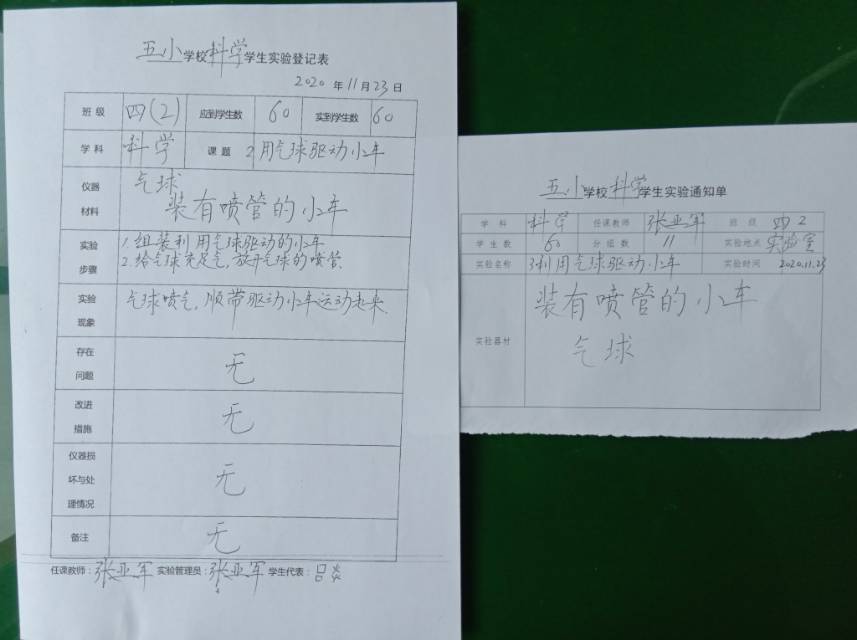 五小学校科学学生实验登记表
2020年11月23日
班级 四(2) 应到学生数 60 实到学生数 60
学科 科学 课题 2用气球驱动小车
仪器材料
气球
装有喷管的小车
实验步骤
1.组装利用气球驱动的小车
2.给气球充足气,放开气球的喷管.
实验现象
气球喷气,顺带驱动小车运动起来.
存在问题 无
改进措施 无
仪器损坏与处理情况 无
备注 无
任课教师:张亚军 实验管理员:张亚军 学生代表:
五小学校科学学生实验通知单
学科 科学 任课教师 张亚军 班级 四2
学生数 60 分组数 11 实验地点 实验室
实验名称 3利用气球驱动小车 实验时间 2020.11.23
实验器材
装有喷管的小车
气球